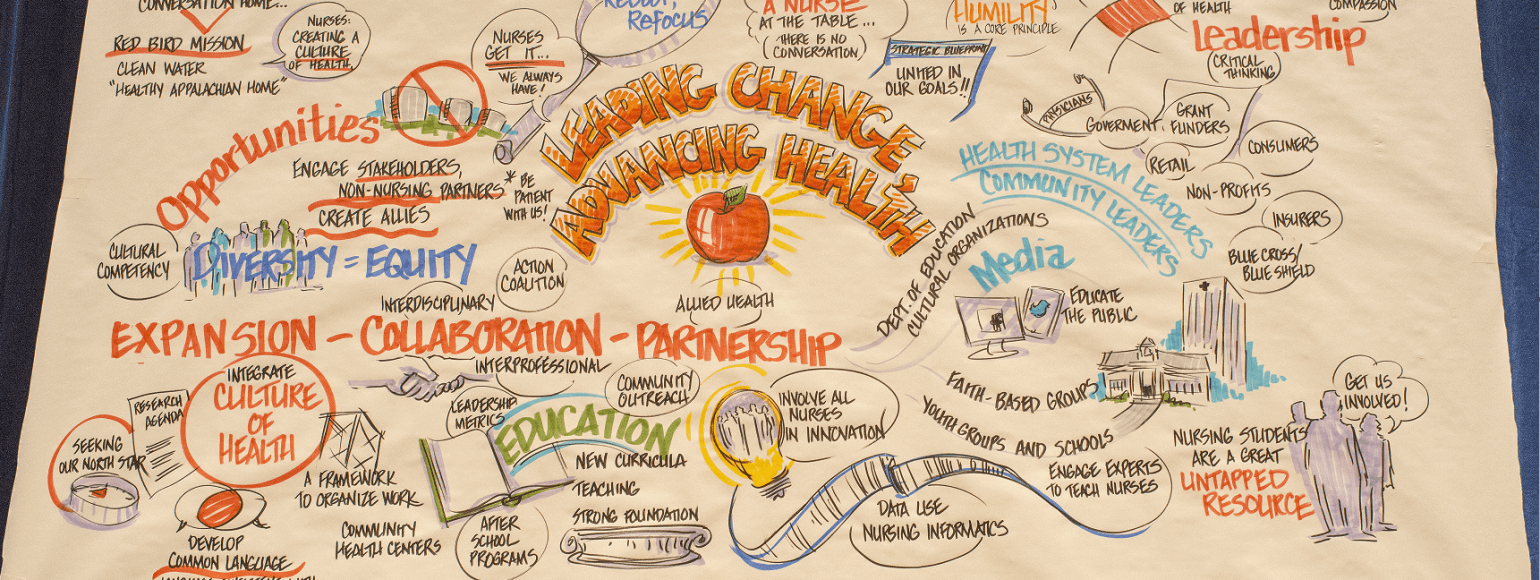 CONVERSATION HOME...
RED BIRD MISSION
CLEAN WATER
"HEALTHY APPALACHIAN HOME"
NURSES:
CREATING A
CULTURE
OF HEALTH.
NURSES
GET IT...
WE ALWAYS
HAVE!
REBOOT,
REFOCUS
A NURSE
AT THE TABLE...
(THERE IS NO
CONVERSATION)
HUMILITY
IS A CORE PRINCIPLE
STRATEGIC BLUEPRINT
UNITED IN
OUR GOALS!!
OF HEALTH
COMPASSION
Leadership
CRITICAL
THINKING
PHYSICIANS
GOVERMENT
GRANT
FUNDERS
CONSUMERS
RETAIL
NON-PROFITS
INSURERS
BLUE CROSS/
BLUE SHIELD
LEADING CHANGE,
ADVANCING HEALTH
Opportunities
ENGAGE STAKEHOLDERS,
NON-NURSING PARTNERS
CREATE ALLIES
* BE
PATIENT
WITH US!
CULTURAL
COMPETENCY
DIVERSITY = EQUITY
INTERDISCIPLINARY
ACTION
COALITION
ALLIED HEALTH
HEALTH SYSTEM LEADERS
COMMUNITY LEADERS
DEPT. OF EDUCATION
CULTURAL ORGANIZATIONS
Media
EDUCATE
THE PUBLIC
EXPANSION - COLLABORATION - PARTNERSHIP
INTEGRATE
CULTURE
OF
HEALTH
RESEARCH
AGENDA
SEEKING
OUR NORTH STAR
A FRAMEWORK
TO ORGANIZE WORK
DEVELOP
COMMON LANGUAGE
COMMUNITY
HEALTH CENTERS
INTERPROFESSIONAL
LEADERSHIP
METRICS
COMMUNITY
OUTREACH
EDUCATION
NEW CURRICULA
TEACHING
STRONG FOUNDATION
AFTER
SCHOOL
PROGRAMS
INVOLVE ALL
NURSES
IN INNOVATION
DATA USE
NURSING INFORMATICS
FAITH-BASED GROUPS
YOUTH GROUPS AND SCHOOLS
ENGAGE EXPERTS
TO TEACH NURSES
NURSING STUDENTS
ARE A GREAT
UNTAPPED
RESOURCE
GET US
INVOLVED!